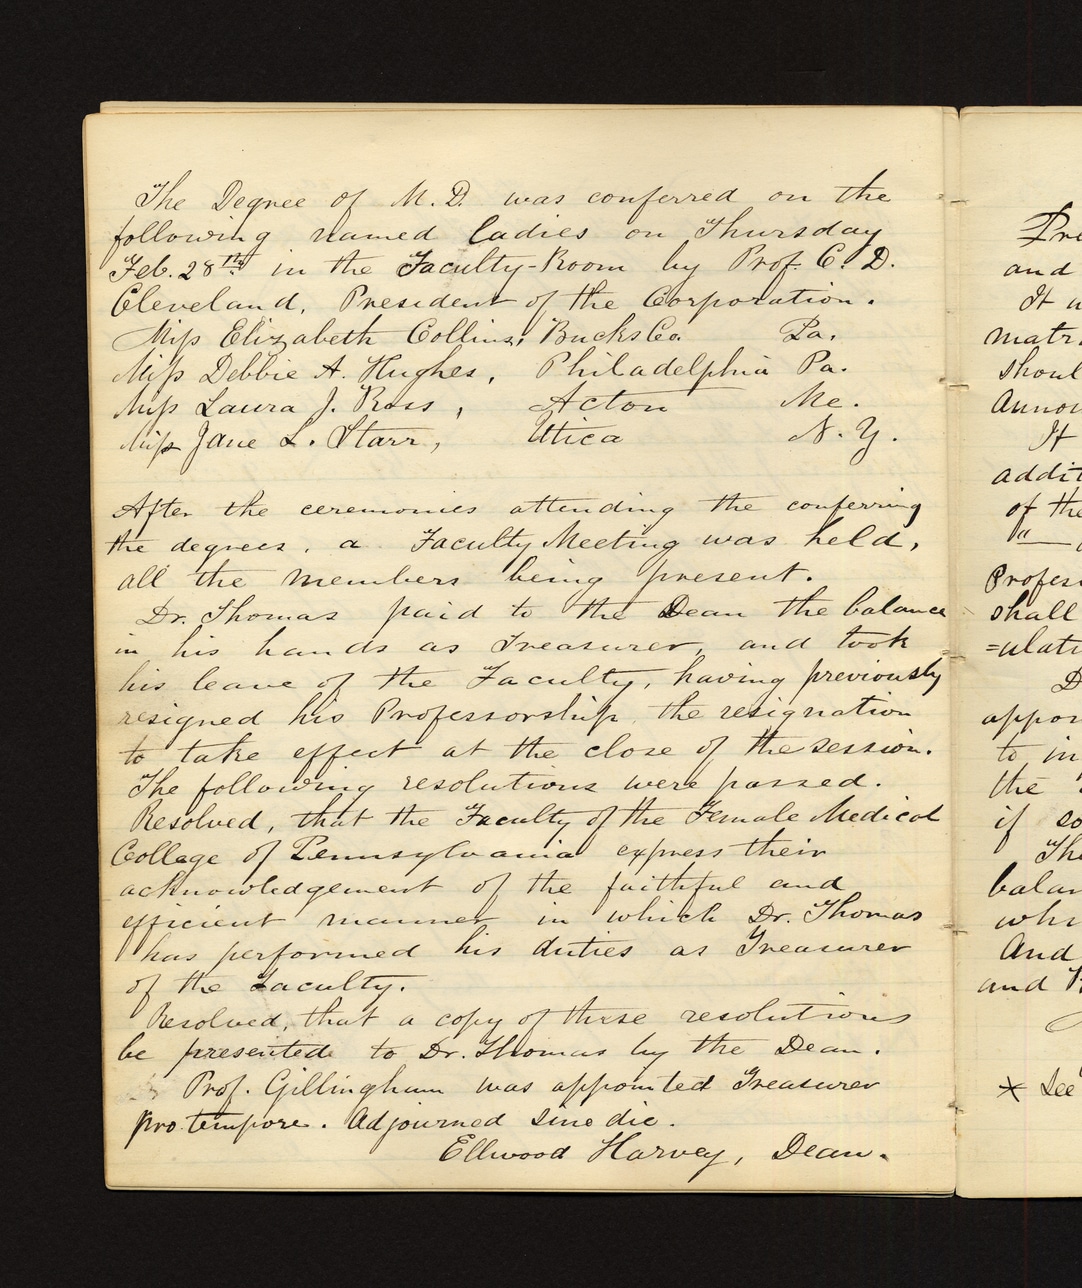 The Degree of M.D. was conferred on the
following named ladies on Thursday
Feb. 28th in the Faculty-Room by Prof. C. D.
Cleveland, President of the Corporation.
Miss Elizabeth Collins, Bucks Co. Pa.
Miss Debbie A. Hughes, Philadelphia Pa.
Miss Laura J. Ross, Acton Me.
Miss Jane L. Starr, Utica N. Y.
After the ceremonies attending the conferring
the degrees, a Faculty Meeting was held,
all the members being present.
Dr. Thomas paid to the Dean the balance
in his hands as Treasurer, and took
his leave of the Faculty, having previously
resigned his Professorship, the resignation
to take effect at the close of the session.
The following resolutions were passed.
Resolved, that the Faculty of the Female Medical
College of Pennsylvania express their
acknowledgement of the faithful and
efficient manner in which Dr. Thomas
has performed his duties as Treasurer
of the Faculty.
Resolved, that a copy of these resolutions
be presented to Dr. Thomas by the Dean.
Prof. Gillingham was appointed Treasurer
pro. tempore. Adjourned sine die.
Ellwood Harvey, Dean.
Pre
and
It a
matr
shoul
Annou
It
addit
of the
"
Profess
shall
=ulati
D
appoi
to in
the
if so
Th
balan
whi
And
and
* See